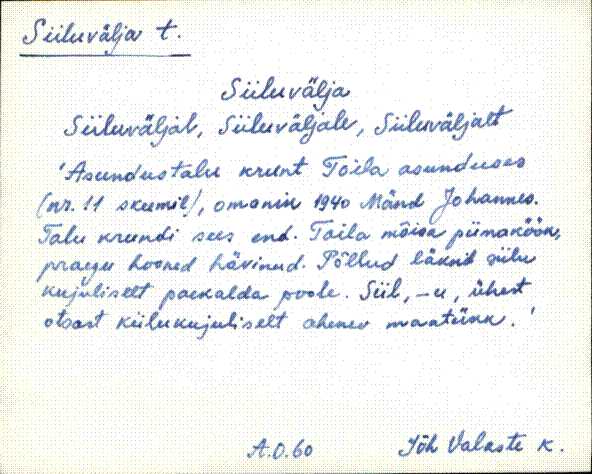 Siiluvälja t.
Siiluvälja
Siiluväljal, Siiluväljale, Siiluväljalt
'Asundustalu krunt Toila asunduses
(nr. 11 skeemil), omanik 1940 Mänd Johannes.
Talu krundi sees end. Toila mõisa piinaköök,
praegu hooned hävinud. Põllud läksid siilu
kujuliselt paekalda poole. Siil, -u, ühest
otsast kiilukujuliselt ahenev maatükk.'
A.O.60 Jõh Valaste k.